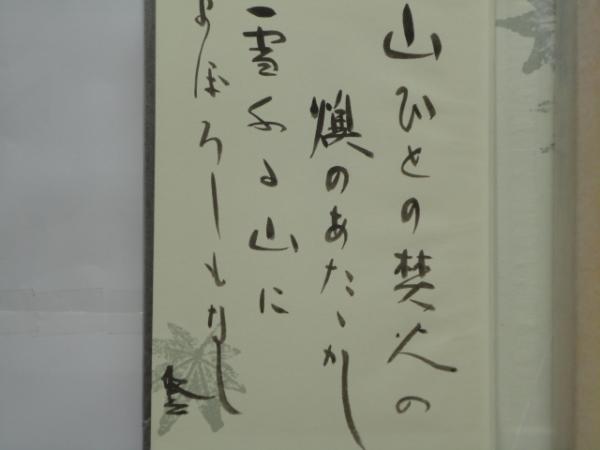 山ひとの焚火の
燠のあたゝかし
雪ふる山に
まぼろしもなし